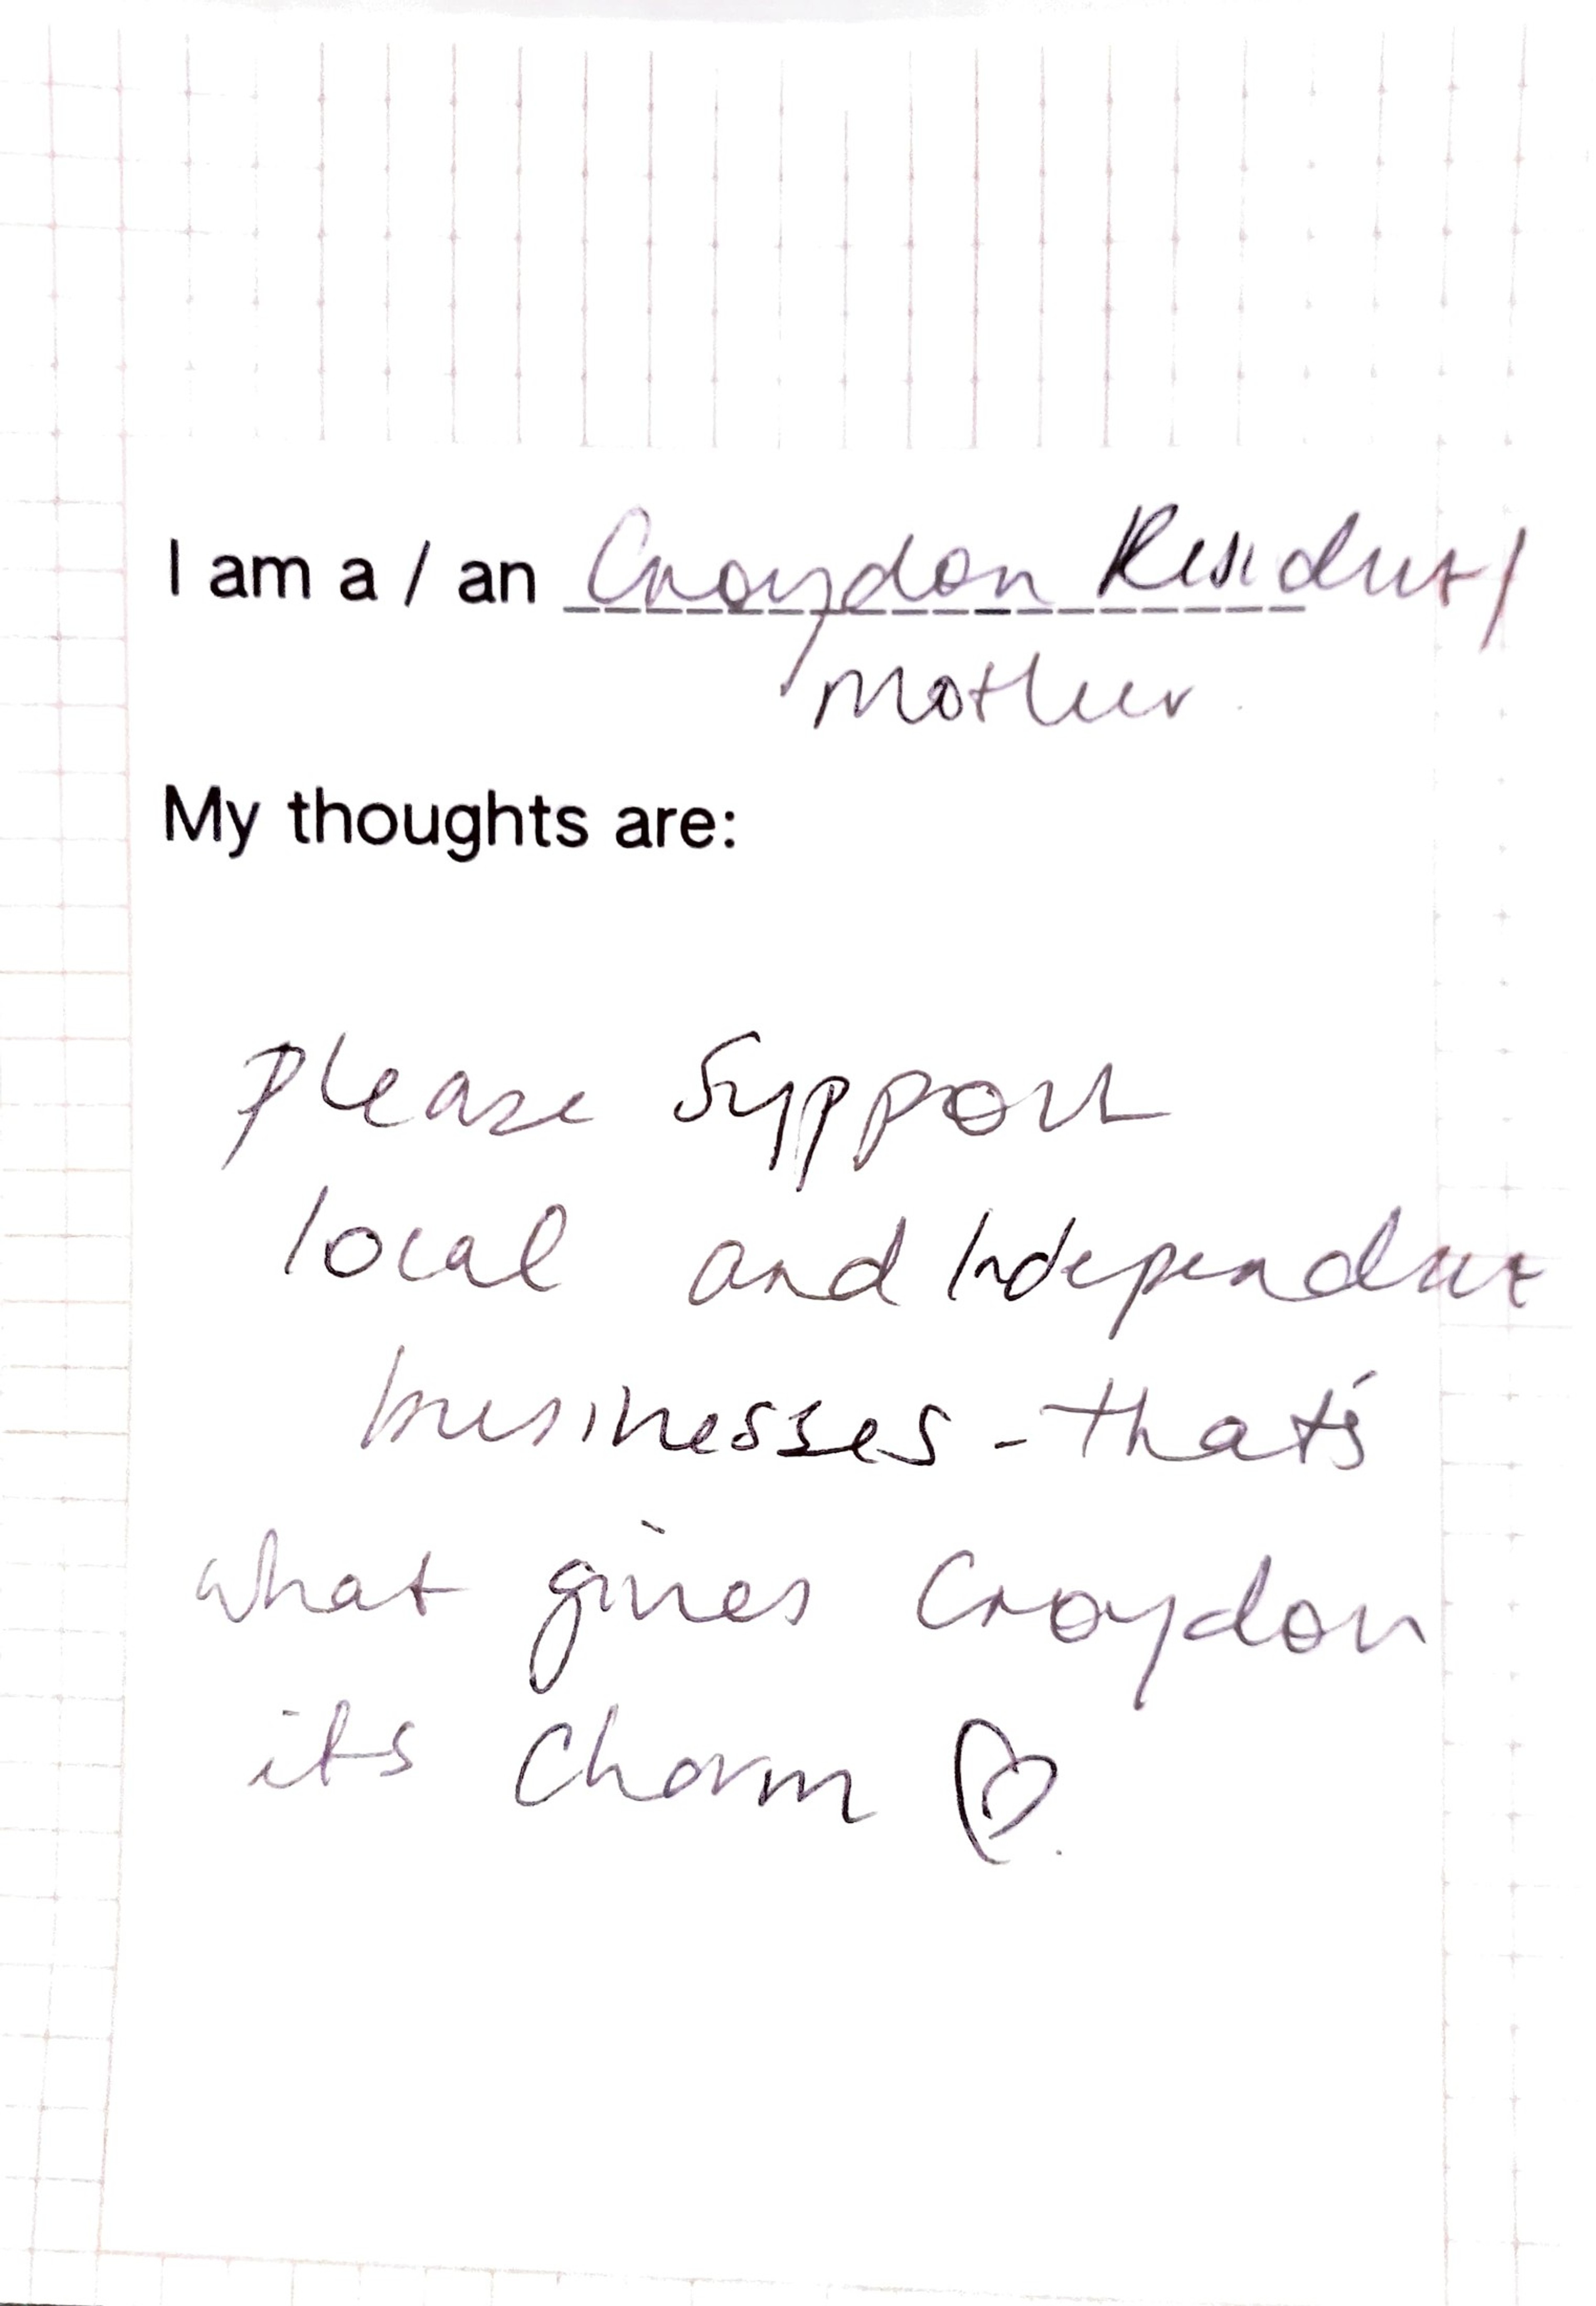 I am a / an Croydon Resident/
Mother.
My thoughts are:
Please Support
local and Independent
businesses - that's
what gives Croydon
its Charm ♡.